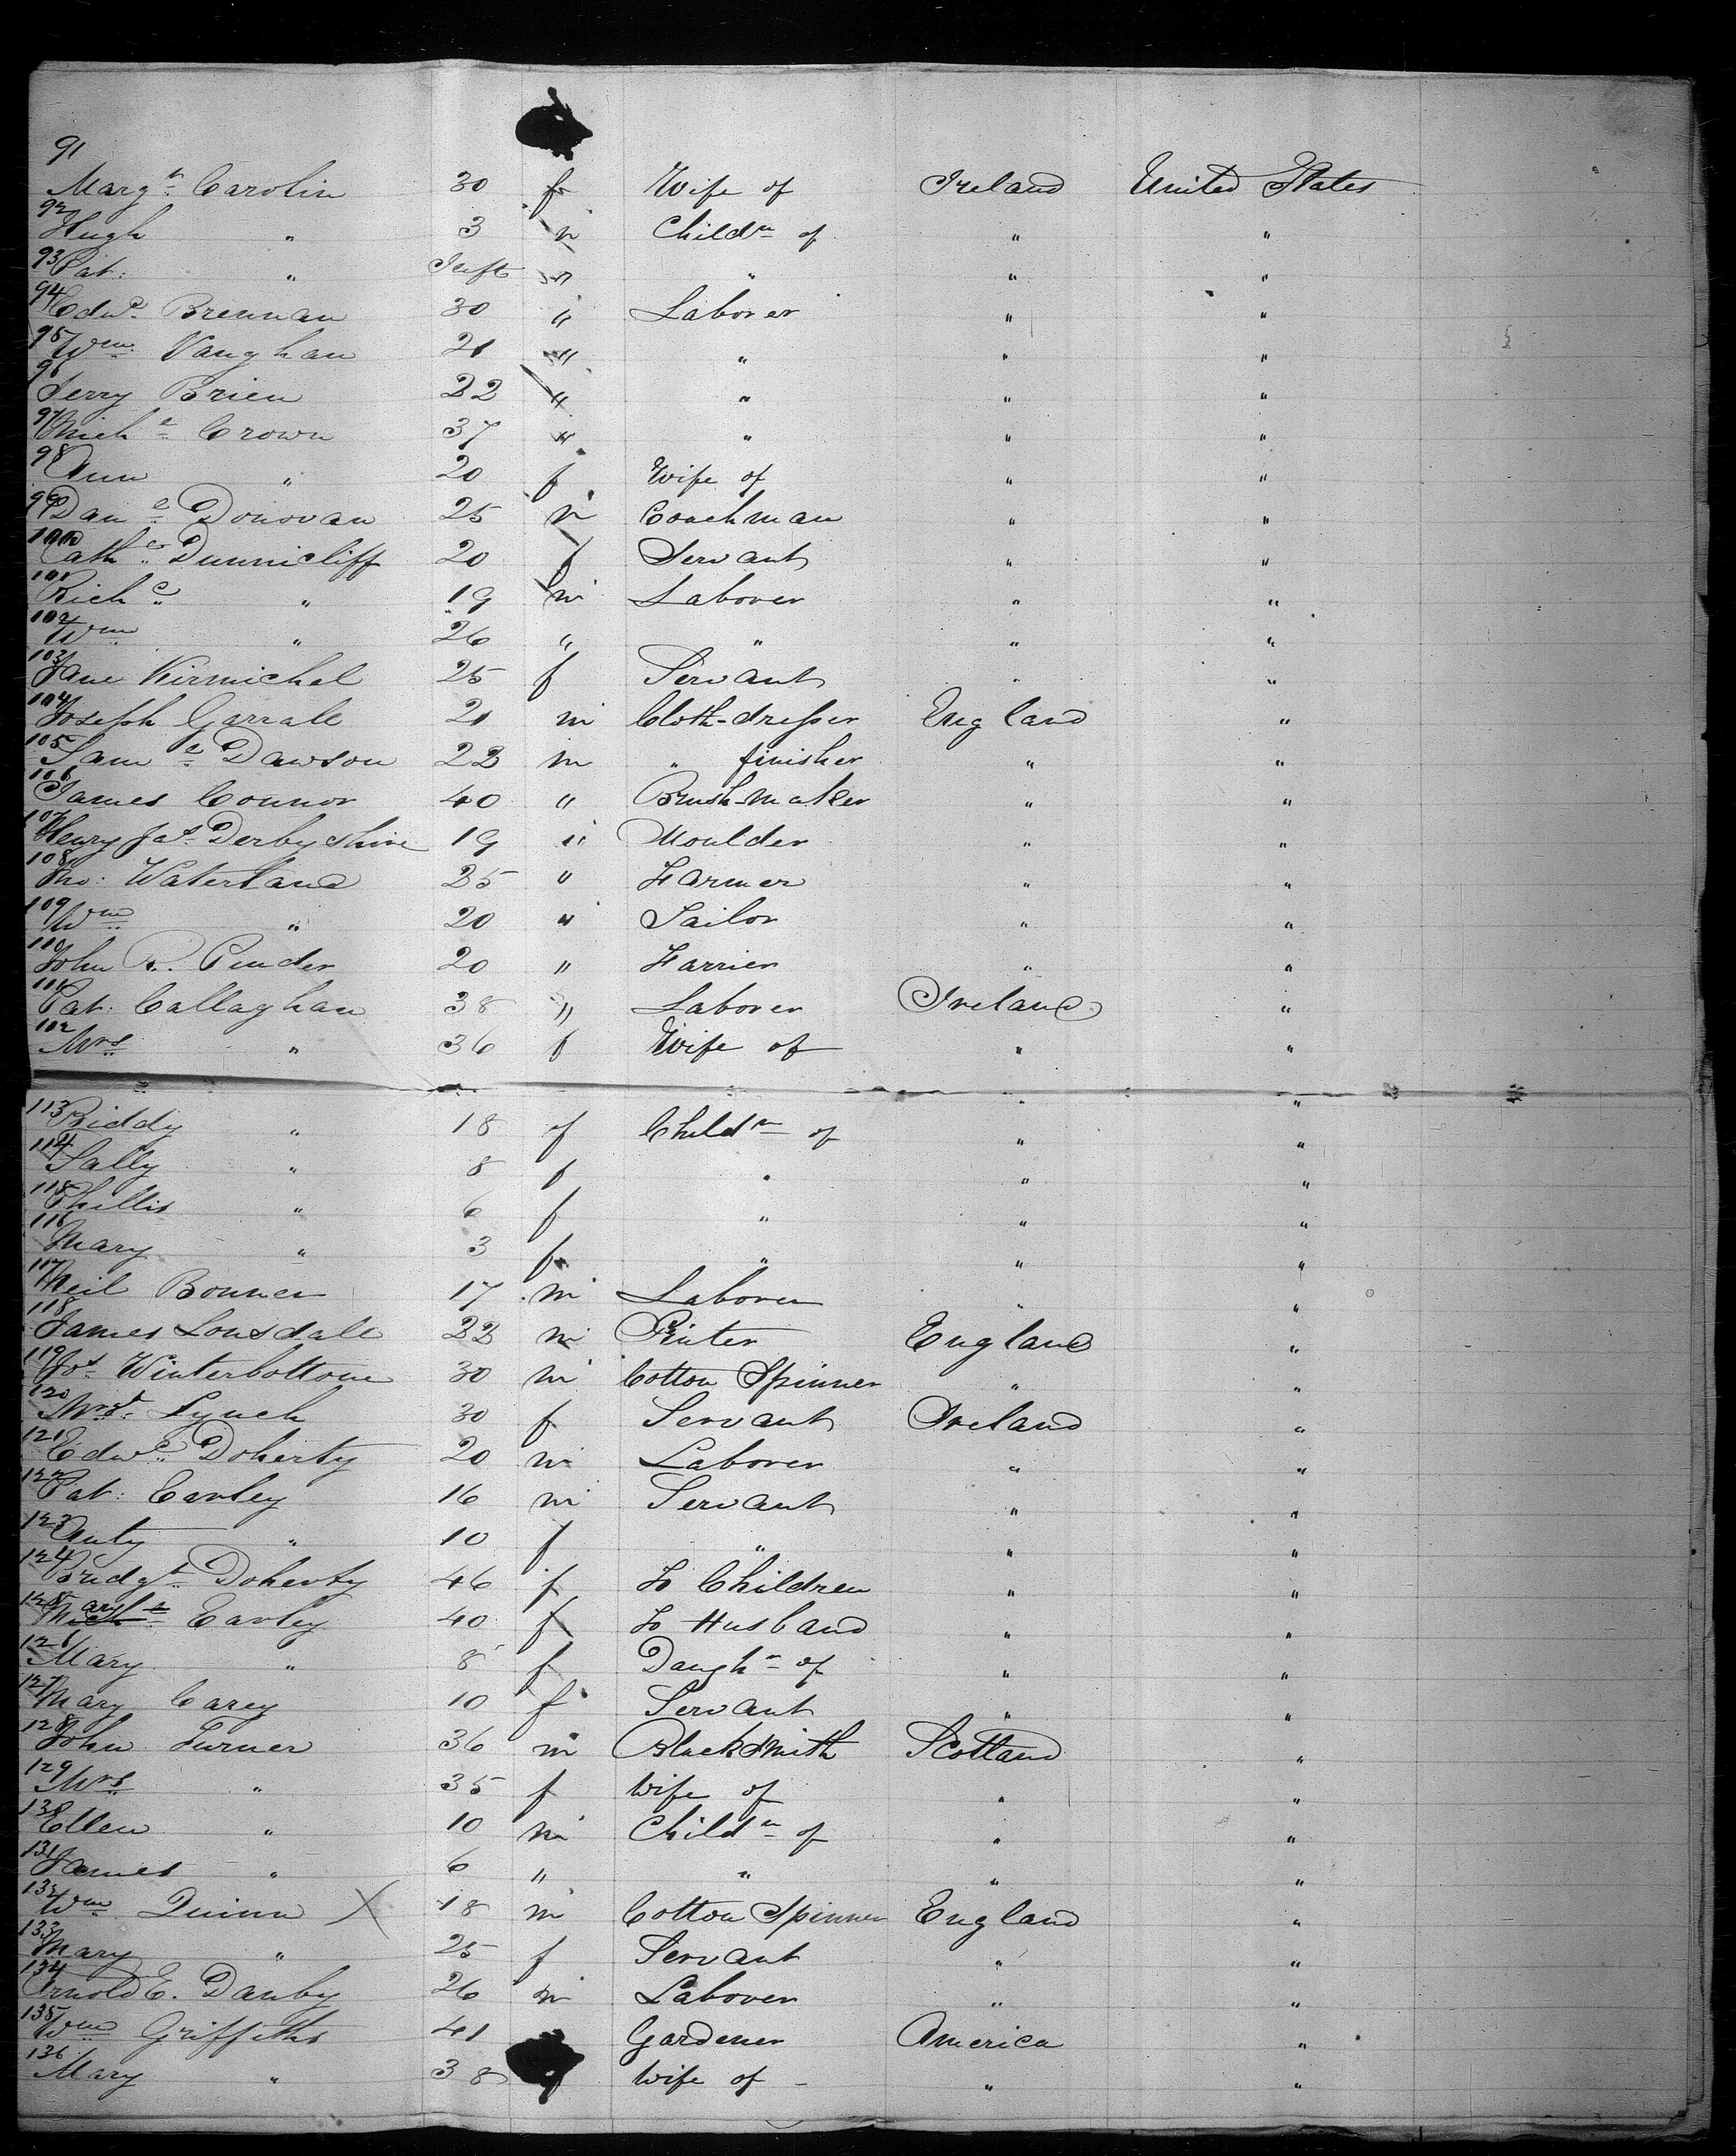 91
Margt. Carolin 30 f Wife of Ireland United States
92 Hugh " 3 m Childn of " "
93 Pat: " Inft " " " "
94 Edwd. Brennan 30 " Laborer " "
95 Wm. Vaughan 21 " " " "
96 Jerry Brien 22 " " " "
97 Michl. Crown 37 " " " "
98 Ann " 20 f Wife of " "
99 Danl. Donovan 25 m Coachman " "
100 Cathe. Dunnicliff 20 f Servant " "
101 Richd. " 19 m Laborer " "
102 Wm " 26 " " " "
103 Jane Kirmichel 25 f Servant " "
104 Joseph Garrale 21 m Cloth-dresser England "
105 Saml. Dawson 22 m " finisher " "
106 James Connor 40 " Brush-maker " "
107 Henry Jas. Derbyshire 19 " Moulder " "
108 Tho: Waterland 25 " Farmer " "
109 Wm " 20 " Tailor " "
110 John R. Pinder 20 " Farrier " "
111 Pat: Callaghan 38 " Laborer Ireland "
112 Mrs " 36 f Wife of " "
113 Biddy " 18 f Childn of " "
114 Sally " 8 f " " "
115 Phillis " 6 f " " "
116 Mary " 3 f " " "
117 Neil Bonner 17 m Laborer " "
118 James Lonsdale 22 m Printer England "
119 Jos. Winterbottom 30 m Cotton Spinner " "
120 Lynch 30 f Servant Ireland "
121 Edwd. Doherty 20 m Laborer " "
122 Pat: Earley 16 m Servant " "
123 Anty " 10 f " " "
124 Bridgt. Doherty 46 f To Children " "
125 Mary Earley 40 f To Husband " "
126 Mary " 8 f Daughr of " "
127 Mary Carey 10 f Servant " "
128 John Turner 36 m Blacksmith Scotland "
129 Mrs " 35 f Wife of " "
130 Ellen " 10 m Childn of " "
131 James " 6 " " " "
132 Wm Quinn X 18 m Cotton Spinner England "
133 Mary " 25 f Servant " "
134 Arnold E. Danby 26 m Laborer " "
135 Wm Griffiths 41 Gardener America "
136 Mary " 38 f Wife of - " "